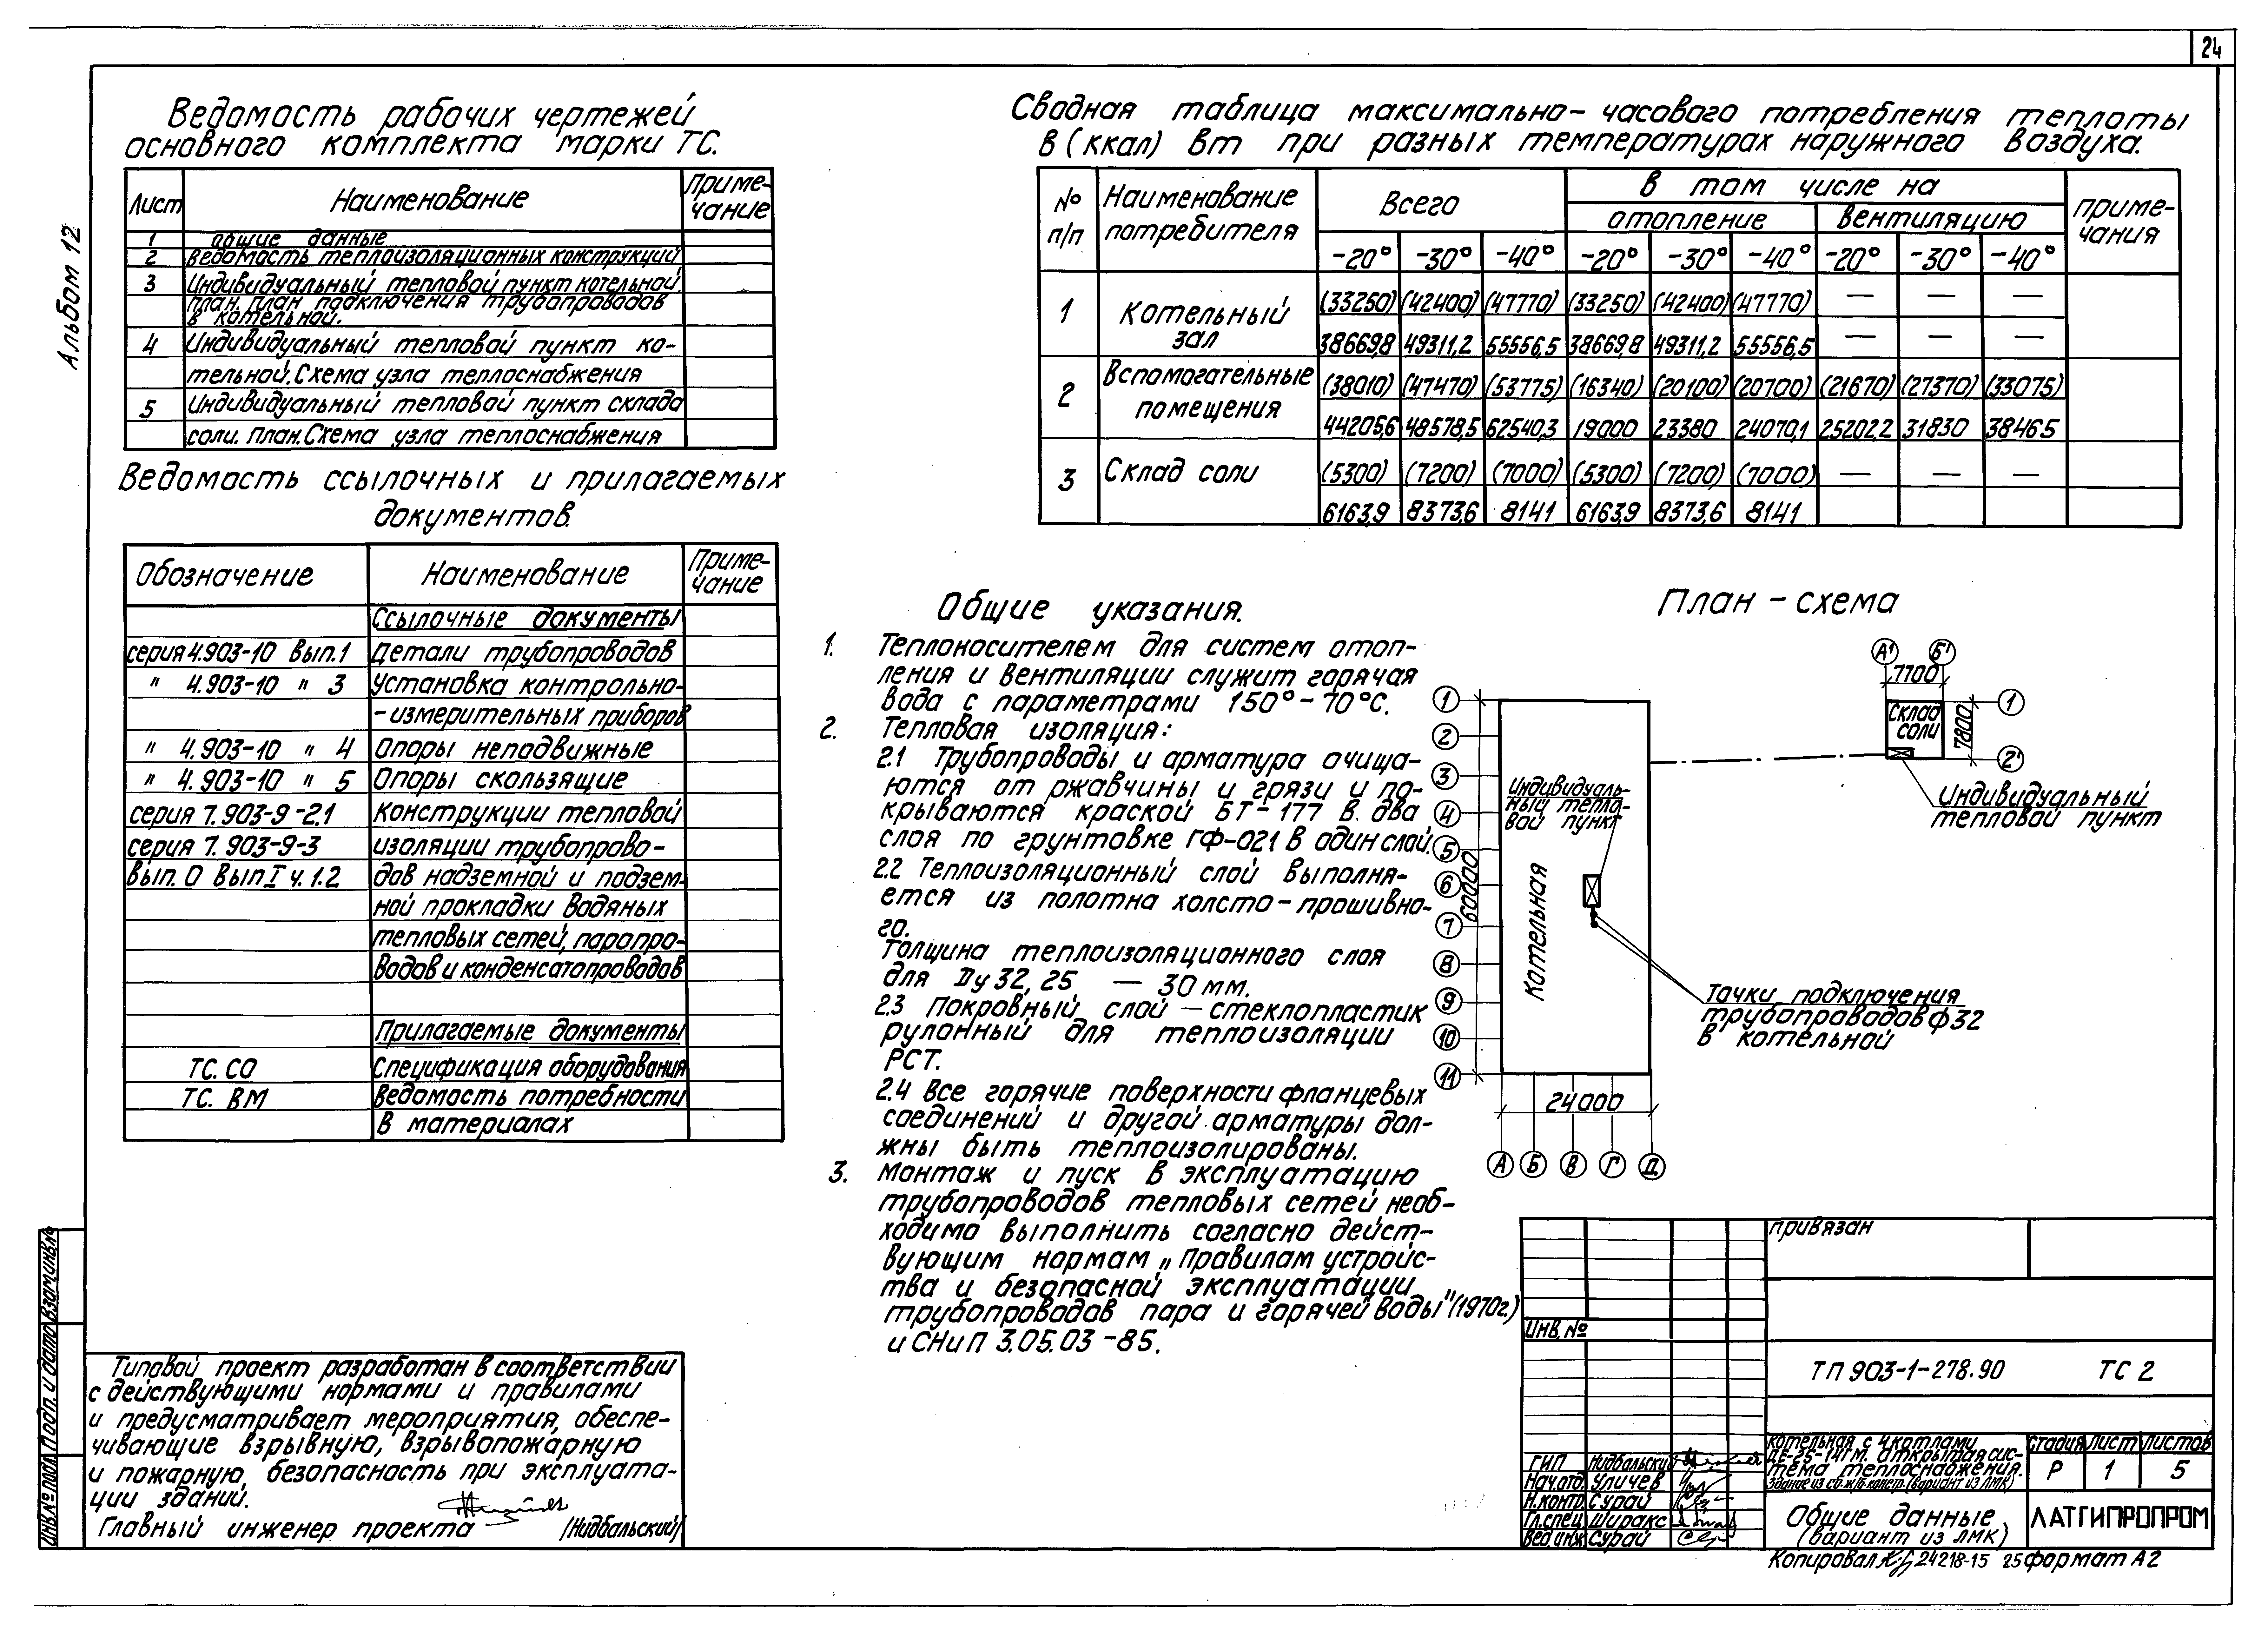 24
Альбом 12
Ведомость рабочих чертежей
основного комплекта марки ТС.
Лист Наименование Приме-
чание
1 общие данные
2 ведомость теплоизоляционных конструкций
3 Индивидуальный тепловой пункт котельной.
план. план подключения трубопроводов
в котельной.
4 Индивидуальный тепловой пункт ко-
тельной. Схема узла теплоснабжения
5 Индивидуальный тепловой пункт склада
соли. План. Схема узла теплоснабжения
Ведомость ссылочных и прилагаемых
документов.
Обозначение Наименование Приме-
чание
Ссылочные документы
серия 4.903-10 Вып.1 Детали трубопроводов
" 4.903-10 " 3 Установка контрольно-
-измерительных приборов
" 4.903-10 " 4 Опоры неподвижные
" 4.903-10 " 5 Опоры скользящие
серия 7.903-9-2.1 Конструкции тепловой
серия 7.903-9-3 изоляции трубопрово-
Вып. 0 Вып I ч. 1.2 дов надземной и подзем-
ной прокладки водяных
тепловых сетей, паропро-
водов и конденсатопроводов
Прилагаемые документы
ТС. СО Спецификация оборудования
ТС. ВМ Ведомость потребности
в материалах
Типовой проект разработан в соответствии
с действующими нормами и правилами
и предусматривает мероприятия, обеспе-
чивающие взрывную, взрывопожарную
и пожарную безопасность при эксплуата-
ции зданий.
Главный инженер проекта /Нидбальский/
Инв.№ подл. Подп. и дата Взам.инв.№
Сводная таблица максимально-часового потребления теплоты
в (ккал) Вт при разных температурах наружного воздуха.
№ п/п Наименование потребителя Всего в том числе на приме-
чания
отопление вентиляцию
-20° -30° -40° -20° -30° -40° -20° -30° -40°
1 Котельный зал (33250) (42400) (47770) (33250) (42400) (47770) — — —
38669,8 49311,2 55556,5 38669,8 49311,2 55556,5 — — —
2 Вспомогательные помещения (38010) (47470) (53775) (16340) (20100) (20700) (21670) (27370) (33075)
44205,6 48578,5 62540,3 19000 23380 24070,1 25202,2 31830 38465
3 Склад соли (5300) (7200) (7000) (5300) (7200) (7000) — — —
6163,9 8373,6 8141 6163,9 8373,6 8141
Общие указания.
1. Теплоносителем для систем отоп-
ления и вентиляции служит горячая
вода с параметрами 150°-70°С.
2. Тепловая изоляция:
2.1 Трубопроводы и арматура очища-
ются от ржавчины и грязи и по-
крываются краской БТ-177 в два
слоя по грунтовке ГФ-021 в один слой.
2.2 Теплоизоляционный слой выполня-
ется из полотна холсто-прошивно-
го.
Толщина теплоизоляционного слоя
для Ду 32, 25 — 30 мм.
2.3 Покровный слой — стеклопластик
рулонный для теплоизоляции
РСТ.
2.4 Все горячие поверхности фланцевых
соединений и другой арматуры дол-
жны быть теплоизолированы.
3. Монтаж и пуск в эксплуатацию
трубопроводов тепловых сетей необ-
ходимо выполнить согласно дейст-
вующим нормам „Правилам устройс-
тва и безопасной эксплуатации
трубопроводов пара и горячей воды" (1970г.)
и СНиП 3.05.03-85.
План - схема
А' Б'
7700
Склад
соли
7800
1
2'
Индивидуальный
тепловой пункт
1
2
3
4
5
6
7
8
9
10
11
60000
Индивидуаль-
ный тепло-
вой пункт
Котельная
Точки подключения
трубопроводов ф32
в котельной
24000
А Б В Г Д
привязан
ИНВ.№
ТП 903-1-278.90 ТС 2
ГИП Нидбальский
Нач.отд. Уличев
Н.контр. Сурай
Гл.спец. Ширакс
Вед.инж. Сурай
котельная с 4 котлами
ДЕ-25-14ГМ. Открытая сис-
тема теплоснабжения.
Здание из сб. ж/б констр. (вариант из ЛМК)
Стадия Лист Листов
Р 1 5
Общие данные
(вариант из ЛМК)
ЛАТГИПРОПРОМ
Копировал 24218-15 25 формат А2